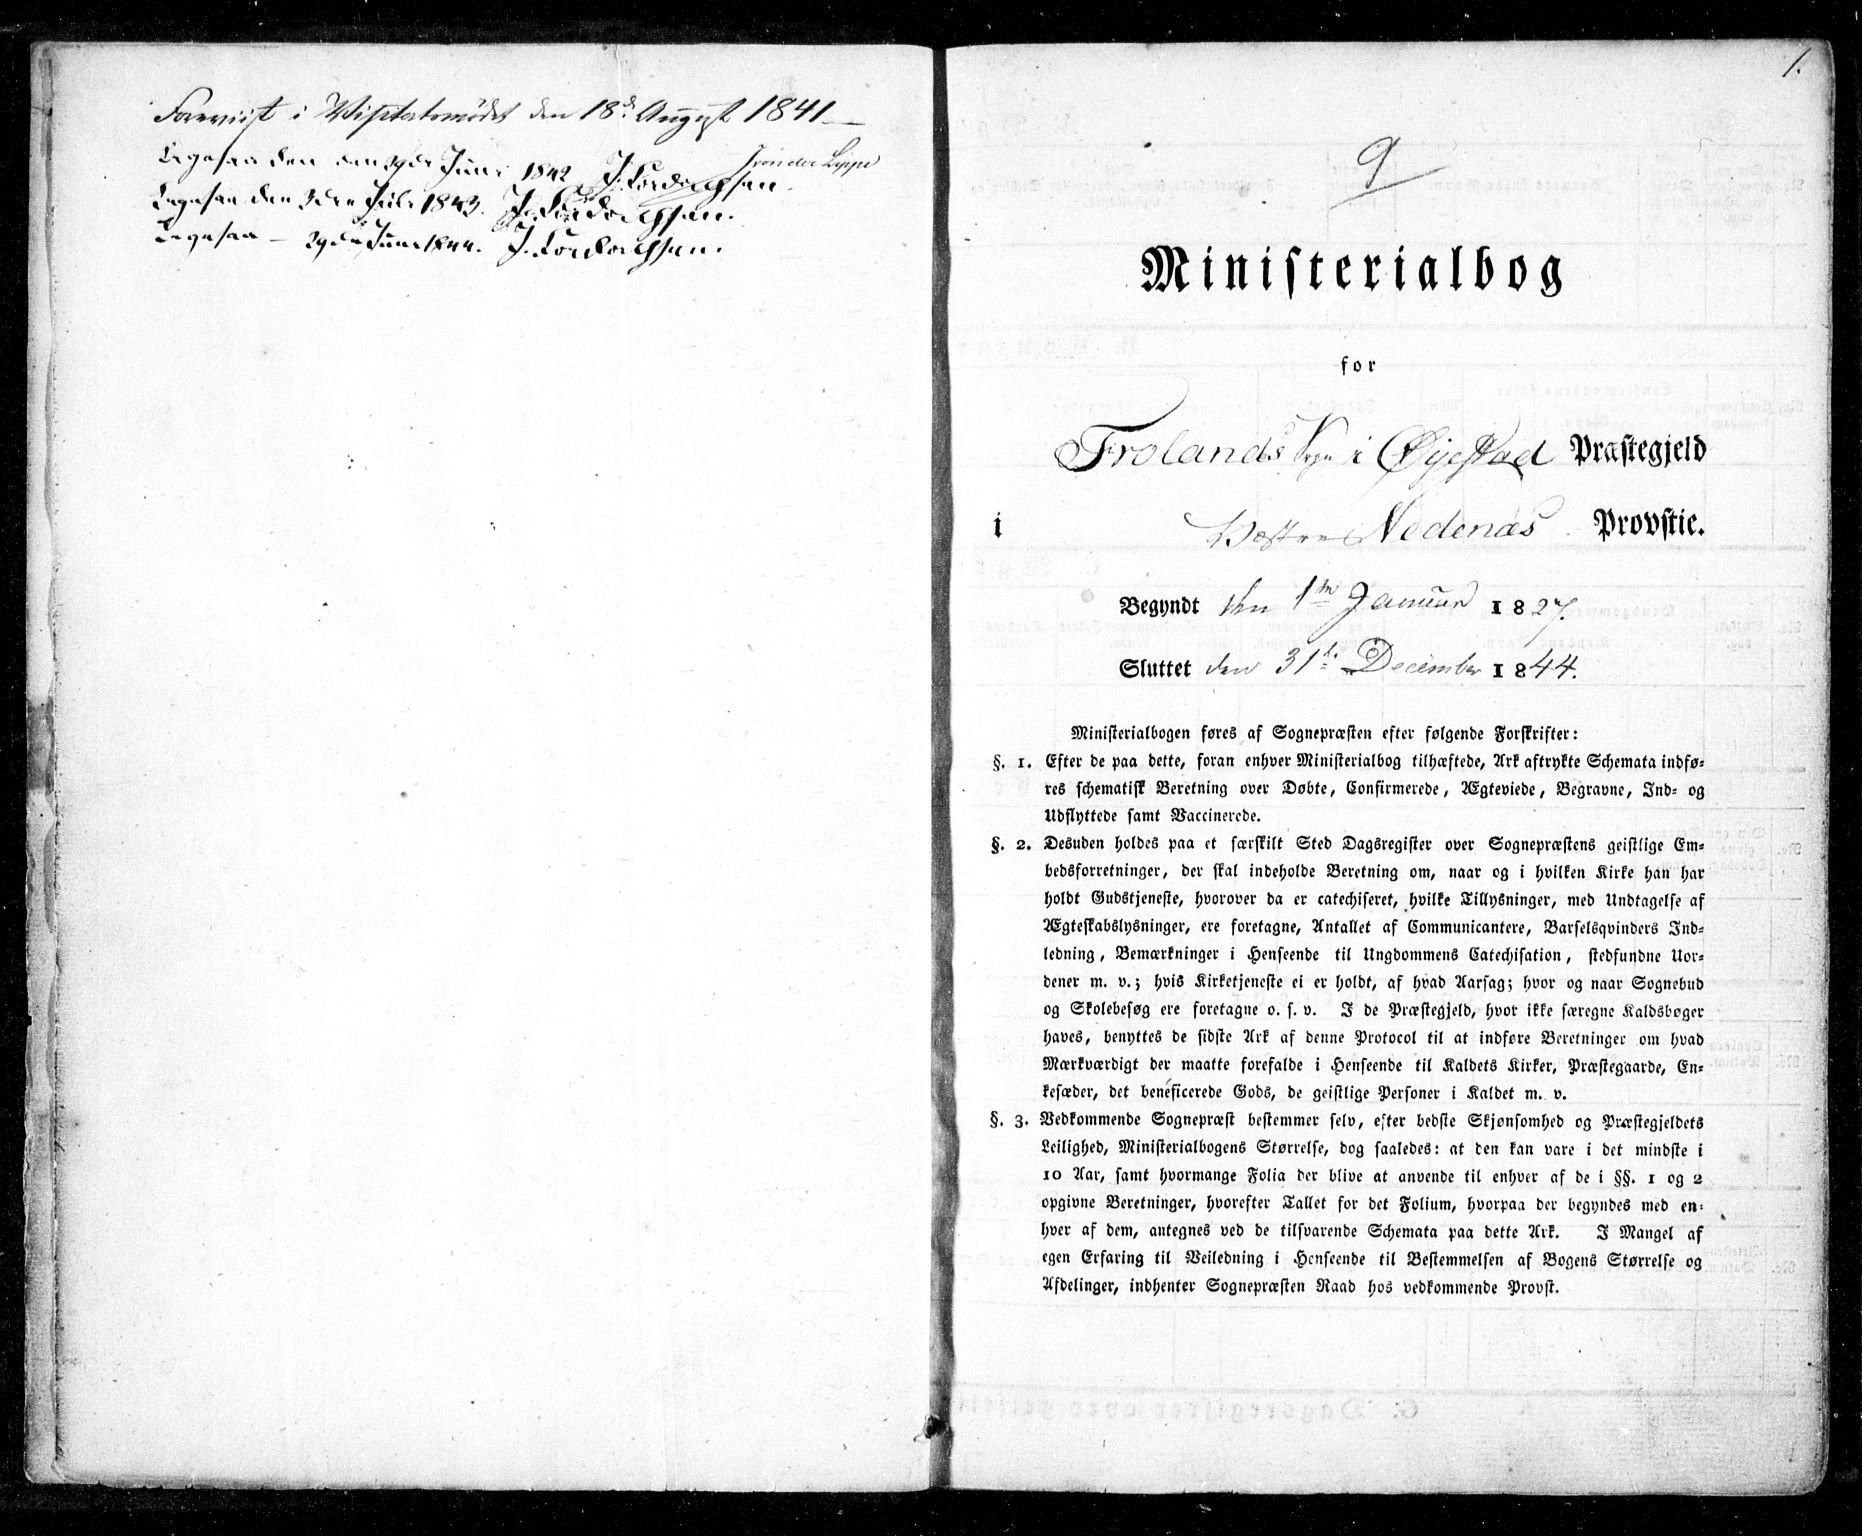 Foreviist i Visitatsmødet den 18d August 1841 —
von der Lippe
Ligesaa den 29de Juni 1842 J. Fredrichsen.
Ligesaa den 3die Juli 1843. J. Fredrichsen.
Ligesaa — 29de Juni 1844. J. Fredrichsen.
1.
9
Ministerialbog
for
Frolands Sogn i Øjestad Præstegjeld
i Vestre Nedenæs Provstie.
Begyndt den 1te Januar 1827.
Sluttet den 31te December 1844.
Ministerialbogen føres af Sognepræsten efter følgende Forskrifter:
§. 1. Efter de paa dette, foran enhver Ministerialbog tilhæftede, Ark aftrykte Schemata indfø-
res schematisk Beretning over Døbte, Confirmerede, Ægteviede, Begravne, Ind- og
Udflyttede samt Vaccinerede.
§. 2. Desuden holdes paa et særskilt Sted Dagsregister over Sognepræstens geistlige Em-
bedsforretninger, der skal indeholde Beretning om, naar og i hvilken Kirke han har
holdt Gudstjeneste, hvorover da er catechiseret, hvilke Tillysninger, med Undtagelse af
Ægteskabslysninger, ere foretagne, Antallet af Communicantere, Barselqvinders Ind-
ledning, Bemærkninger i Henseende til Ungdommens Catechisation, stedfundne Uor-
dener m. v.; hvis Kirketjeneste ei er holdt, af hvad Aarsag; hvor og naar Sognebud
og Skolebesøg ere foretagne o. s. v. I de Præstegjeld, hvor ikke særegne Kaldsbøger
haves, benyttes de sidste Ark af denne Protocol til at indføre Beretninger om hvad
Mærkværdigt der maatte forefalde i Henseende til Kaldets Kirker, Præstegaarde, En-
kesæder, det beneficerede Gods, de geistlige Personer i Kaldet m. v.
§. 3. Vedkommende Sognepræst bestemmer selv, efter bedste Skjønsomhed og Præstegjeldets
Leilighed, Ministerialbogens Størrelse, dog saaledes: at den kan vare i det mindste i
10 Aar, samt hvormange Folia der blive at anvende til enhver af de i §§. 1 og 2
opgivne Beretninger, hvorefter Tallet for det Folium, hvorpaa der begyndes med en-
hver af dem, antegnes ved de tilsvarende Schemata paa dette Ark. I Mangel af
egen Erfaring til Veiledning i Henseende til Bestemmelsen af Bogens Størrelse og
Afdelinger, indhenter Sognepræsten Raad hos vedkommende Provst.